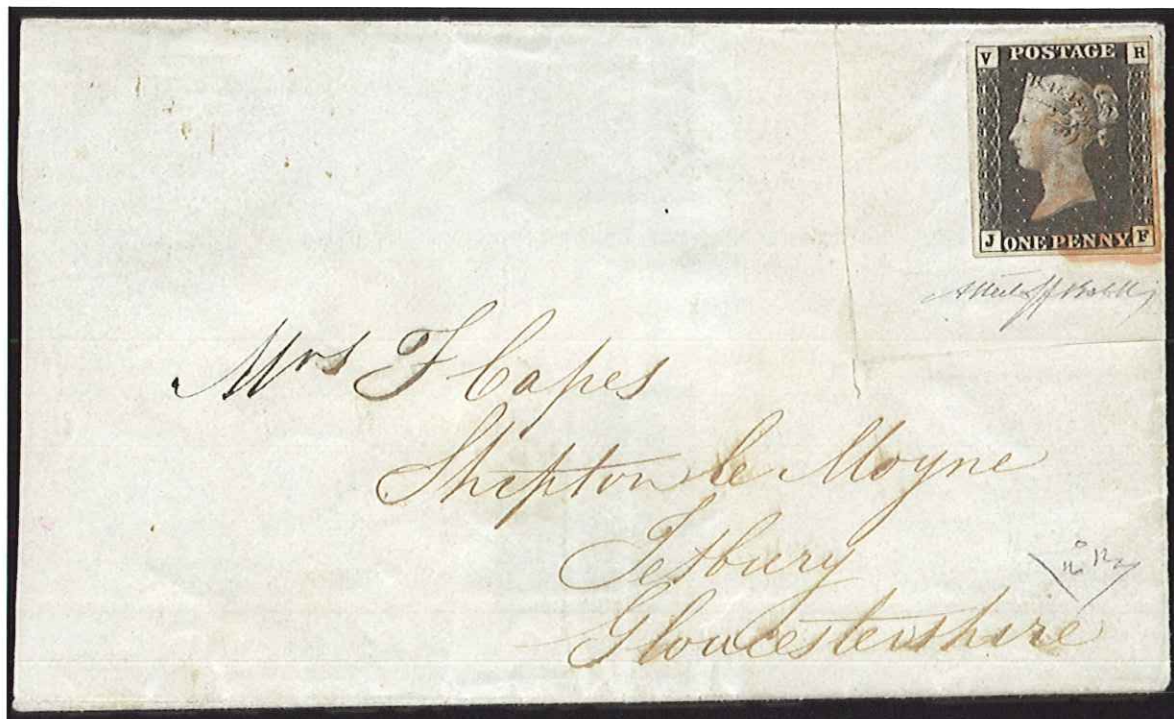 V POSTAGE R
J ONE PENNY F
Mrs F Capes
Shipton le Moyne
Tetbury
Gloucestershire